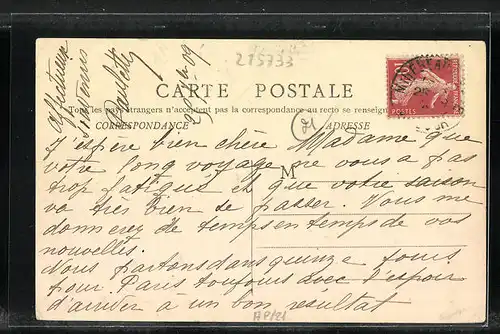 Affectueux
Paulette
275733
CARTE POSTALE
Tous les pays étrangers n'acceptent pas la correspondance au recto se renseign
CORRESPONDANCE
ADRESSE
POSTES
J'espère bien chère Madame que
votre long voyage ne vous a pas
M
trop fatigué et que votre saison
va très bien se passer. Vous me
donnerez de temps en temps de vos
nouvelles.
Nous partons dans quinze jours
pour Paris toujours avec l'espoir
d'arriver à un bon résultat